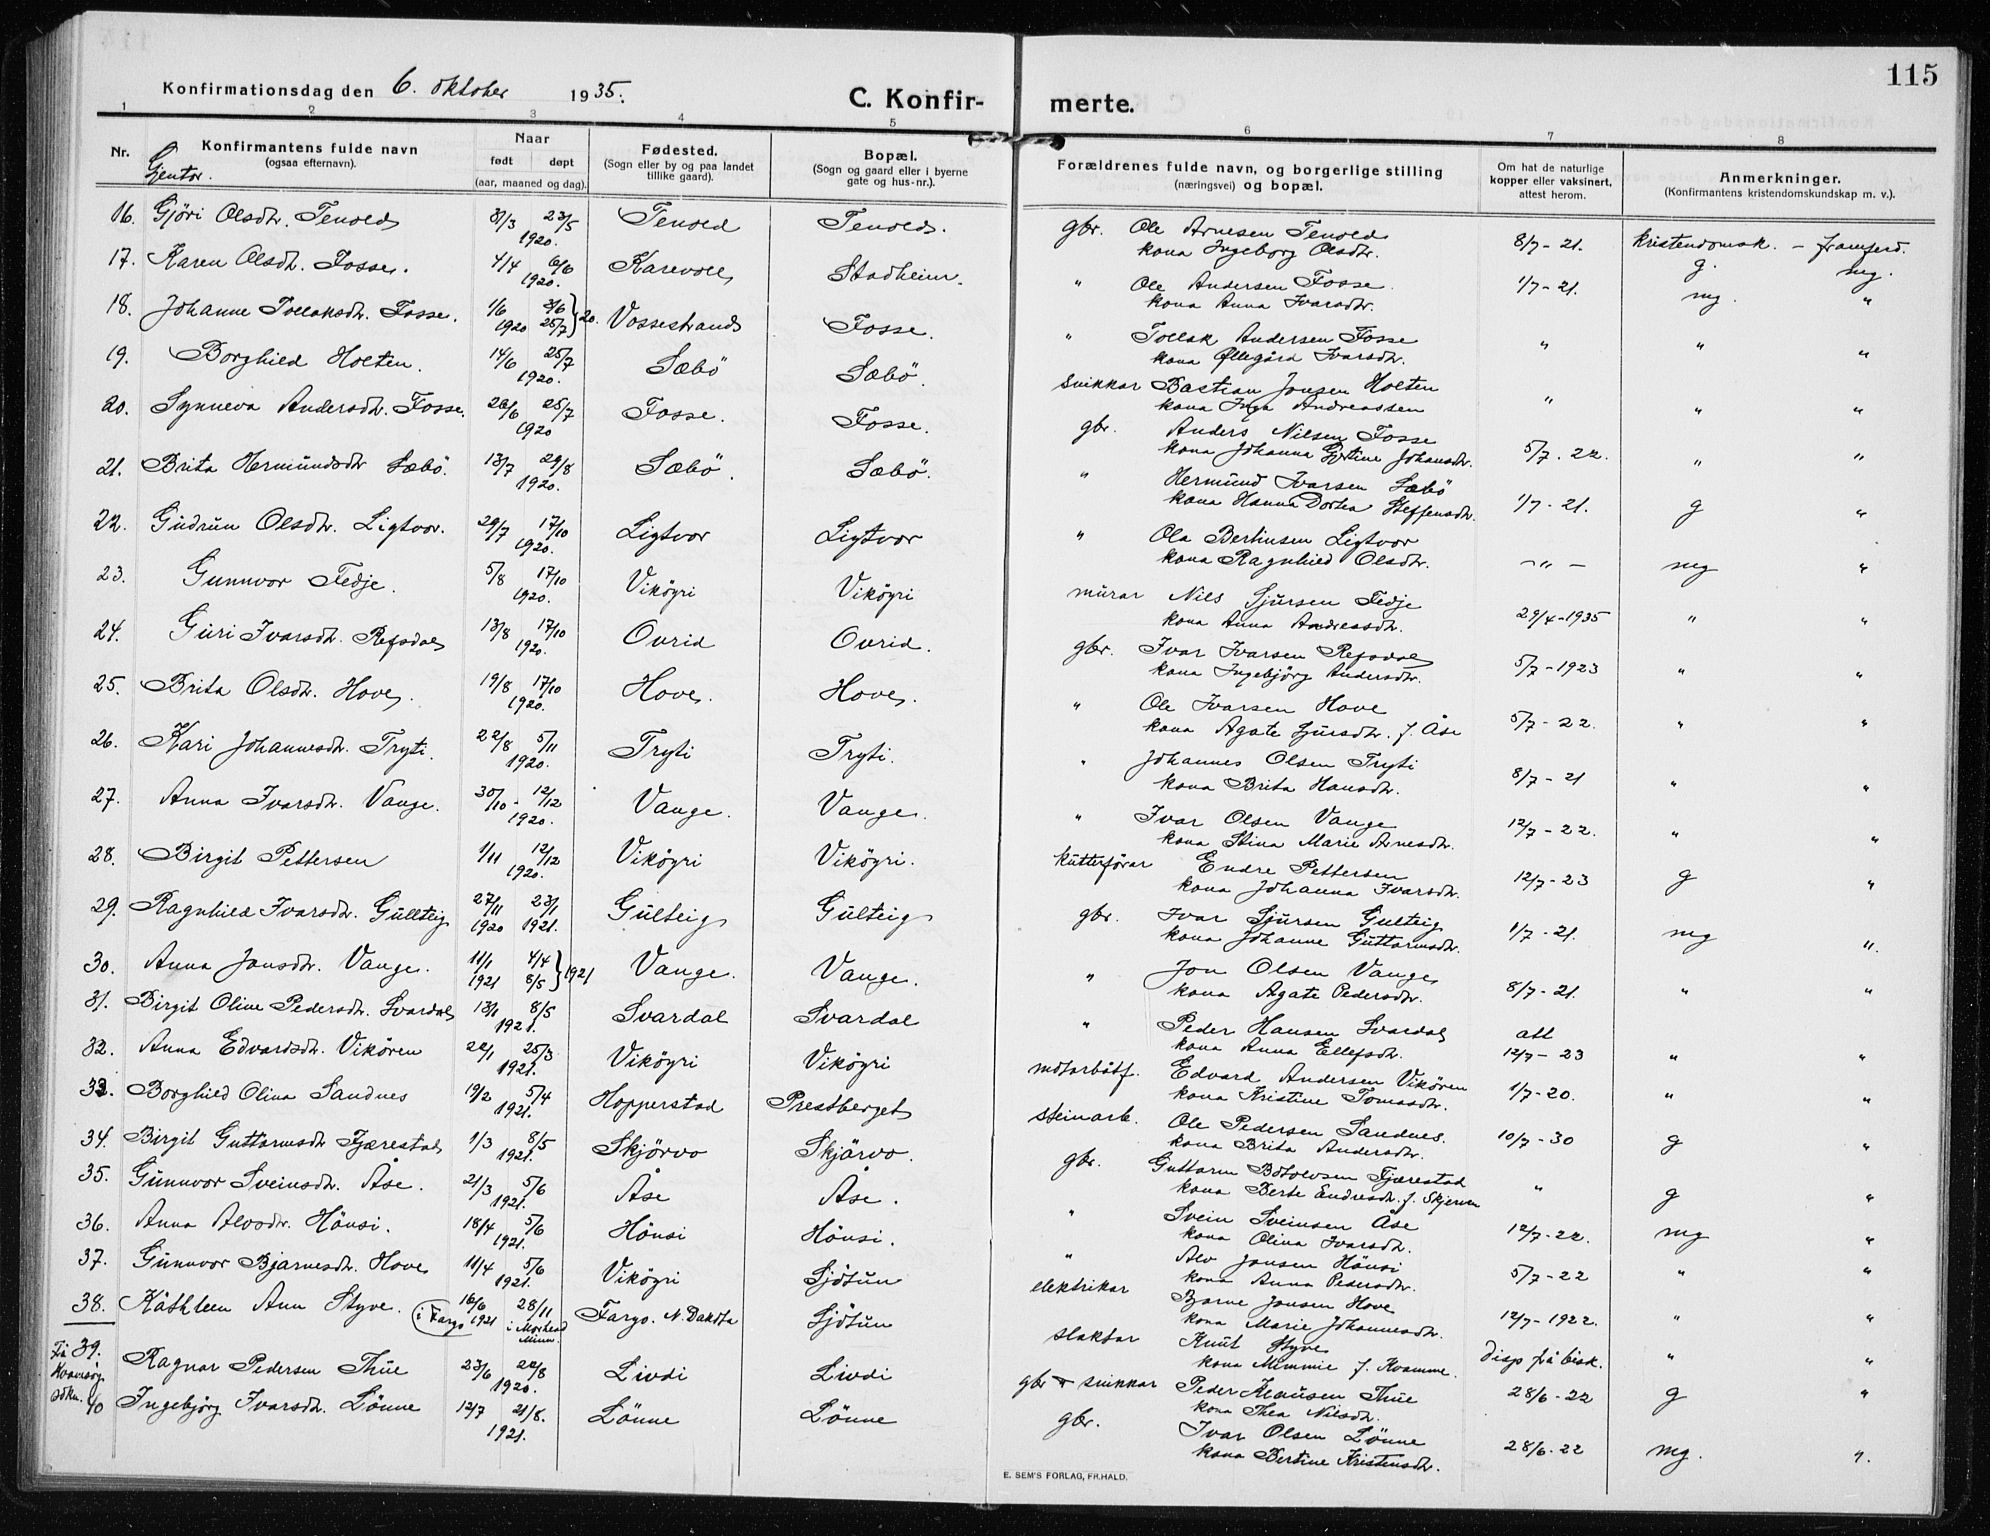 115
Konfirmationsdag den 6. oktober 1935.
C. Konfir- merte.
1 2 3 4 5 6 7 8
Nr.
Konfirmantens fulde navn
(ogsaa efternavn).
Gjentor.
Naar
født døpt
(aar, maaned og dag).
Fødested.
(Sogn eller by og paa landet
tillike gaard).
Bopæl.
(Sogn og gaard eller i byerne
gate og hus-nr.).
Forældrenes fulde navn, og borgerlige stilling
(næringsvei) og bopæl.
Om hat de naturlige
kopper eller vaksinert,
attest herom.
Anmerkninger.
(Konfirmantens kristendomskundskap m. v.).
kristendomsk. – framferd.
16. Gjöri Olsdtr. Tenold 31/3 23/5 1920. Tenold Tenold. gbr. Ole Arnesen Tenold
kona Ingeborg Olsdtr. 8/7-21. g. mg.
17. Karen Olsdtr. Fosse. 4/4 6/6 1920. Karevoll Stadheim. " Ole Andersen Fosse.
kona Anna Ivarsdtr. 1/7-21. mg. "
18. Johanne Tollaksdtr. Fosse. 1/6 1920 25/7 } 20. Vossestrand Fosse. " Tollak Andersen Fosse
kona Øllegård Ivarsdtr. " " "
19. Borghild Holten. 14/6 25/7 1920. Sæbö Sæbö. snikkar Bastian Jonsen Holten
kona Inga Andreassen " " "
20. Synneva Andersdtr. Fosse. 26/6 25/7 1920 Fosse. Fosse. gbr. Anders Nilsen Fosse
kona Johanna Johansdtr. 5/7-22. " "
21. Brita Hermundsdtr Sæbö. 13/7 29/8 1920. Sæbö. Sæbö. " Hermund Ivarsen Sæbö
kona Hanna Dortea Steffensdtr. 1/7-21. g "
22. Gudrun Olsdtr. Ligtvor. 29/7 17/10 1920. Ligtvor Ligtvor " Ola Bertinsen Ligtvor
kona Ragnhild Olsdtr. –"– mg "
23. Gunnvor Fedje. 5/8 17/10 1920. Vikögri Vikögri murar Nils Sjursen Fedje
kona Anna Andreasdtr. 29/4-1935 " "
24. Guri Ivarsdtr. Refsdal 13/8 17/10 1920. Ovrid Ovrid. gbr. Ivar Ivarsen Refsdal
kona Ingebjörg Andersdtr. 5/7-1923 " "
25. Brita Olsdtr. Hove. 19/8 17/10 1920. Hove. Hove. " Ole Ivarsen Hove
kona Agate Sjursdtr. f. Åse 5/7-22. " "
26. Kari Johannesdtr. Tryti. 22/8 5/11 1920. Tryti Tryti. " Johannes Olsen Tryti
kona Brita Hansdtr. 8/7-21 " "
27. Anna Ivarsdtr. Vange. 30/10 - 12/12 1920. Vange. Vange. " Ivar Olsen Vange
kona Stina Marie Arnesdtr. 12/7-22. " "
28. Birgit Pettersen 1/11 12/12 1920. Vikögri Vikögri. kutterförar Endre Pettersen
kona Johanna Ivarsdtr. 12/7-23 g "
29. Ragnhild Ivarsdtr. Gullteig 27/11 1920 23/1 1921. Gulteig Gulteig gbr. Ivar Sjursen Gulteig
kona Johanne Guttormsdtr. 1/7-21. mg "
30. Anna Jonsdtr. Vange. 11/1 1921 4/4 8/5 } 1921 Vange. Vange. " Jon Olsen Vange
kona Agate Pedersdtr. 8/7-21. " "
31. Birgit Oline Pedersdtr. Svardal 13/1 8/5 1921. Svardal Svardal " Peder Hansen Svardal
kona Anna Ellefsdtr. att 12/7-23 " "
32. Anna Edvardsdtr. Vikören 22/1 25/3 1921. Vikögri Vikögri motorbåtf. Edvard Andersen Vikören
kona Kristine Tomasdtr. 1/7-20. " "
33. Borghild Olina Sandnes 19/2 5/4 1921. Hopperstad Prestberget steinarb. Ole Pedersen Sandnes.
kona Brita Andersdtr. 10/7-30 g "
34. Birgit Guttormsdtr Fjærestad 1/3 8/5 1921. Skjörvo Skjärvo. gbr. Guttorm Botolvsen Fjærestad
kona Berte Endresdtr. f. Skjerven " g "
35. Gunnvor Sveinsdtr. Åse. 21/3 5/6 1921. Åse Åse. " Svein Sveinsen Åse
kona Olina Ivarsdtr. 12/7-22. mg "
36. Anna Alvsdtr. Hönsi. 18/4 5/6 1921. Hönsi Hönsi. " Alv Jonsen Hönsi
kona Anna Pedersdtr. 5/7-22 " "
37. Gunnvor Bjarnesdtr. Hove 11/4 5/6 1921. Vikögri Sjötun elektrikar Bjarne Jonsen Hove
kona Marie Johannesdtr. 12/7-1922. " "
38. Kathleen Ann Styve. 16/6 1921 i Fargo 28/11 i Morhead Minn. Fargo. N. Dakota Sjötun slaktar Knut Styve
kona Mimmie f. Kvamme. disp frå bisk. " "
Frå Kvamsöy sokn.
39. Ragnar Pedersen Thue 23/6 22/8 1920. Livdi Livdi gbr + snikkar Peder Klausen Thue
kona Thea Nilsdtr. 28/6-22 g "
40 Ingebjörg Ivarsdtr. Lönne 12/7 21/8. 1921. Lönne Lönne gbr. Ivar Olsen Lönne
kona Bertine Kristensdtr. 28/6-22 mg. "
E. SEM'S FORLAG, FR.HALD.